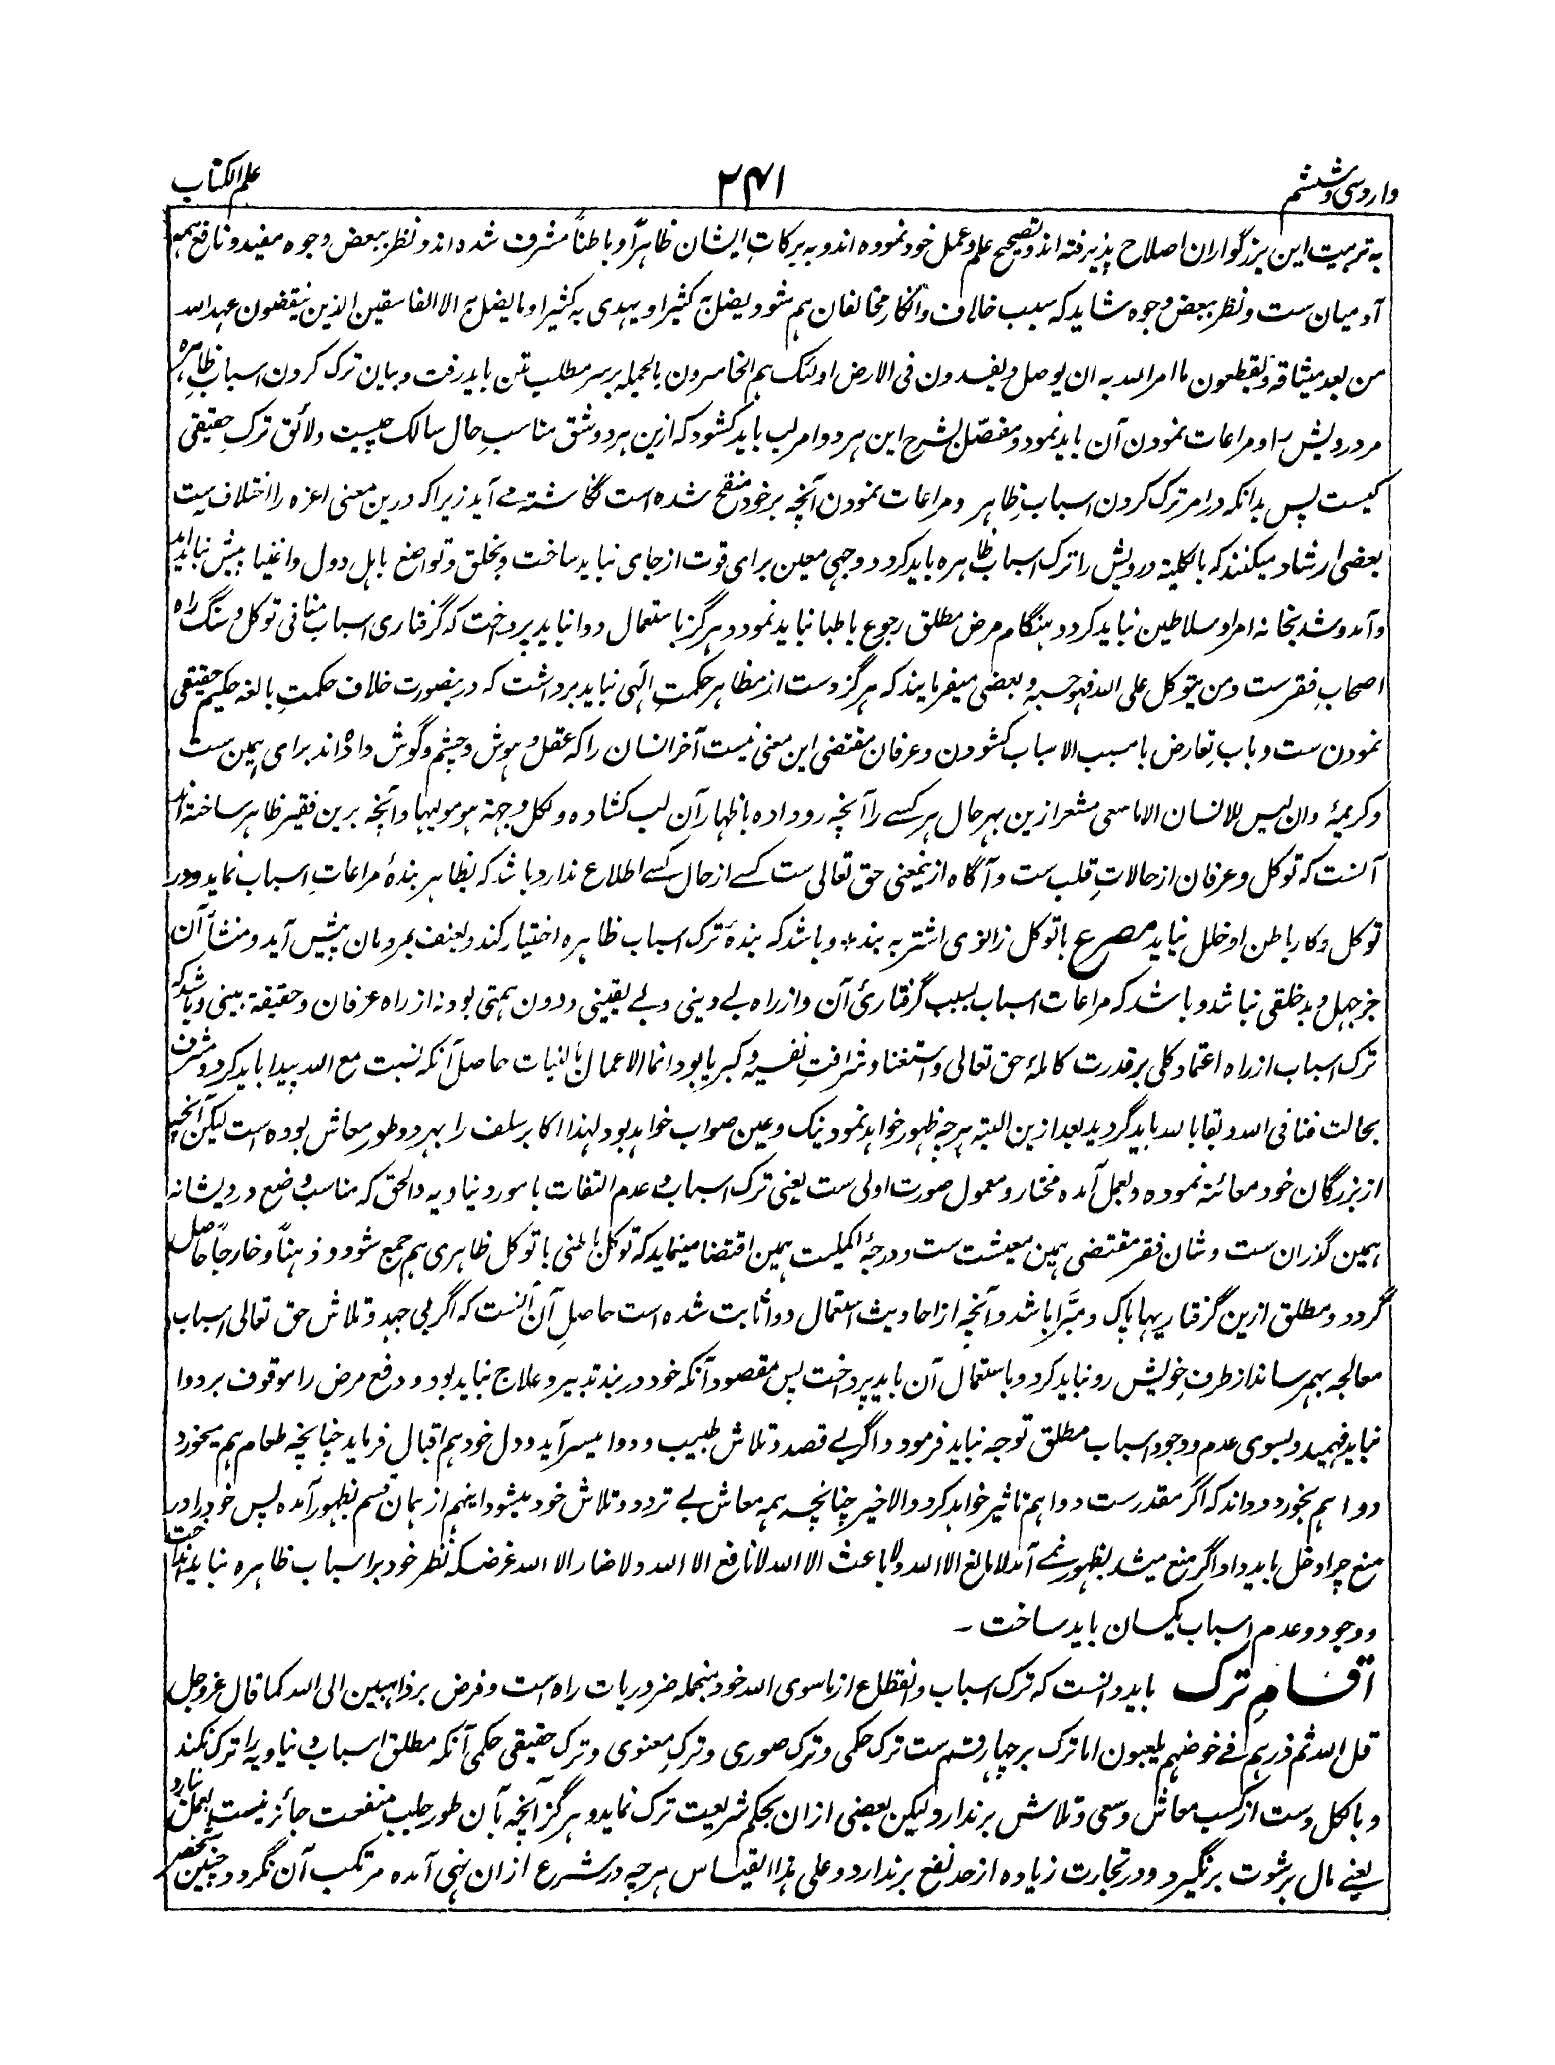 وارد سی و ششم
۲۴۱
علم الکتاب
به تربیت این بزرگواران اصلاح پذیرفته اند و تصحیح علم و عمل خود نموده اند و به برکاتِ ایشان ظاهراً و باطناً مشرف شده اند و نظر ببعض وجوه مفید و نافع همه
آدمیان ست و نظر ببعض وجوه شاید که سبب خلاف و انکار مخالفان هم شود یضل به کثیرا و یهدی به کثیرا و ما یضل به الا الفاسقین الذین ینقضون عهد الله
من بعد میثاقه و یقطعون ما امر الله به ان یوصل و یفسدون فی الارض اولئک هم الخاسرون بالجمله بر سر مطلب متن باید رفت و بیان ترک کردن اسبابِ ظاهره
مر درویش را و مراعات نمودن آن باید نمود و مفصّل بشرح این هر دو امر لب باید کشود که ازین هر دو شق مناسبِ حال سالک چیست و لائق ترکِ حقیقی
کیست پس بدانکه در امر ترک کردن اسبابِ ظاهر و مراعات نمودن آنچه بر خود منقح شده است نگاشته مے آید زیرا که درین معنی اعزه را اختلاف ست
بعضی ارشاد میکنند که بالکلیة درویش را ترک اسباب ظاهره باید کرد و وجهی معین برای قوت از جای نباید ساخت و بخلق و تواضع باهل دول و اغنیا پیش نباید آمد
و آمد و شد بخانه امرا و سلاطین نباید کرد و هنگام مرض مطلق رجوع باطبا نباید نمود و هرگز باستعمال دوا نباید پرداخت که گرفتاری اسباب منافی توکل و سنگ راه
اصحابِ فقر ست و من یتوکل علی الله فهو حسبه و بعضی میفرمایند که هرگز دست از مظاهر حکمتِ الٰهی نباید برداشت که درینصورت خلاف حکمتِ بالغه حکیم حقیقی
نمودن ست و بابِ تعارض با مسبب الاسباب کشودن و عرفان مقتضی این معنی نیست آخر انسان را که عقل و هوش و چشم و گوش داده اند برای همین ست
و کریمهٔ وان لیس للانسان الا ما سعی مشعر ازین بهر حال هر کسے را آنچه رو داده باظهار آن لب کشاده و لکل وجهة هو مولیها و آنچه برین فقیر ظاهر ساخته اند
آنست که توکل و عرفان از حالاتِ قلب ست و آگاه ازینمعنی حق تعالی ست کسے از حال کسے اطلاع ندارد باشد که بظاهر بندهٔ مراعاتِ اسباب نماید و در
توکل و کار باطن او خلل نیاید مصرع با توکل زانوی اشتر به بند؞ و باشد که بندهٔ ترک اسباب ظاهره اختیار کند و بعنف بمردمان پیش آید و منشأ آن
جز جهل و بد خلقی نباشد و باشد که مراعات اسباب بسبب گرفتاریٔ آن و از راه بے دینی و بے یقینی و دون همتی بود نه از راه عرفان و حقیقة بینی و باشد که
ترک اسباب از راه اعتماد کلی بر قدرت کاملهٔ حق تعالی و استغنا و شرافتِ نفسیه و کبریا بود انما الاعمال بالنیات حاصل آنکه نسبت مع الله پیدا باید کرد و مشرف
بحالت فنا فی الله و بقا بالله باید گردید بعد ازین البته هر چه ظهور خواهد نمود نیک و عین صواب خواهد بود لهذا اکابر سلف را بهر دو طور معاش بوده است لیکن آنچه
از بزرگان خود معائنه نموده و بعمل آمده مختار و معمول صورت اولی ست یعنی ترک اسباب و عدم التفات بامور دنیاویه و الحق که مناسب وضع درویشانه
همین گذران ست و شان فقر مقتضی همین معیشت ست و درجهٔ اکملیت همین اقتضا مینماید که توکل باطنی با توکل ظاهری هم جمع شود و ذهناً و خارجاً حاصل
گردد و مطلق ازین گرفتاریها پاک و مبرّا باشد و آنچه از احادیث استعمال دوا ثابت شده است حاصلِ آن آنست که اگر بی جهد و تلاش حق تعالی اسباب
معالجه بهم رساند از طرف خویش رو نباید کرد و باستعمال آن باید پرداخت پس مقصود آنکه خود در بند تدبیر و علاج نباید بود و دفع مرض را موقوف بر دوا
نباید فهمید و بسوی عدم و وجود اسباب مطلق توجه نباید فرمود و اگر بے قصد و تلاش طبیب و دوا میسر آید و دل خود هم اقبال فرماید چنانچه طعام هم میخورد
دوا هم بخورد و داند که اگر مقدر ست دوا هم تاثیر خواهد کرد و الا خیر چنانچه همه معاش بے تردد و تلاش خود میشود اینهم از همان قسم بظهور آمده پس خود را در
منع چرا دخل باید داد اگر منع میشد بظهور نمے آمد لا مانع الا الله ولا باعث الا الله لا نافع الا الله ولا ضار الا الله غرضکه نظر خود بر اسباب ظاهره نباید انداخت
و وجود و عدم اسباب یکسان باید ساخت ۔
اقسامِ ترک باید دانست که ترک اسباب و انقطاع از ما سوی الله خود منجمله ضروریات راه است و فرض بر ذاهبین الی الله کما قال عز و جل
قل الله ثم ذرهم فے خوضهم یلعبون اما ترک بر چهار قسم ست ترک حکمی و ترکِ صوری و ترکِ معنوی و ترک حقیقی حکمی آنکه مطلق اسباب دنیاویه را ترک نکند
و بالکل دست از کسب معاش و سعی و تلاش برندارد و لیکن بعضی ازان بحکم شریعت ترک نماید و هرگز آنچه بآن طور جلب منفعت جائز نیست بعمل نیارد
یعنے مال برشوت برنگیرد و در تجارت زیاده از حد نفع برندارد و علی هذا القیاس هر چه در شرع ازان نهی آمده مرتکب آن نگردد و چنین شخص